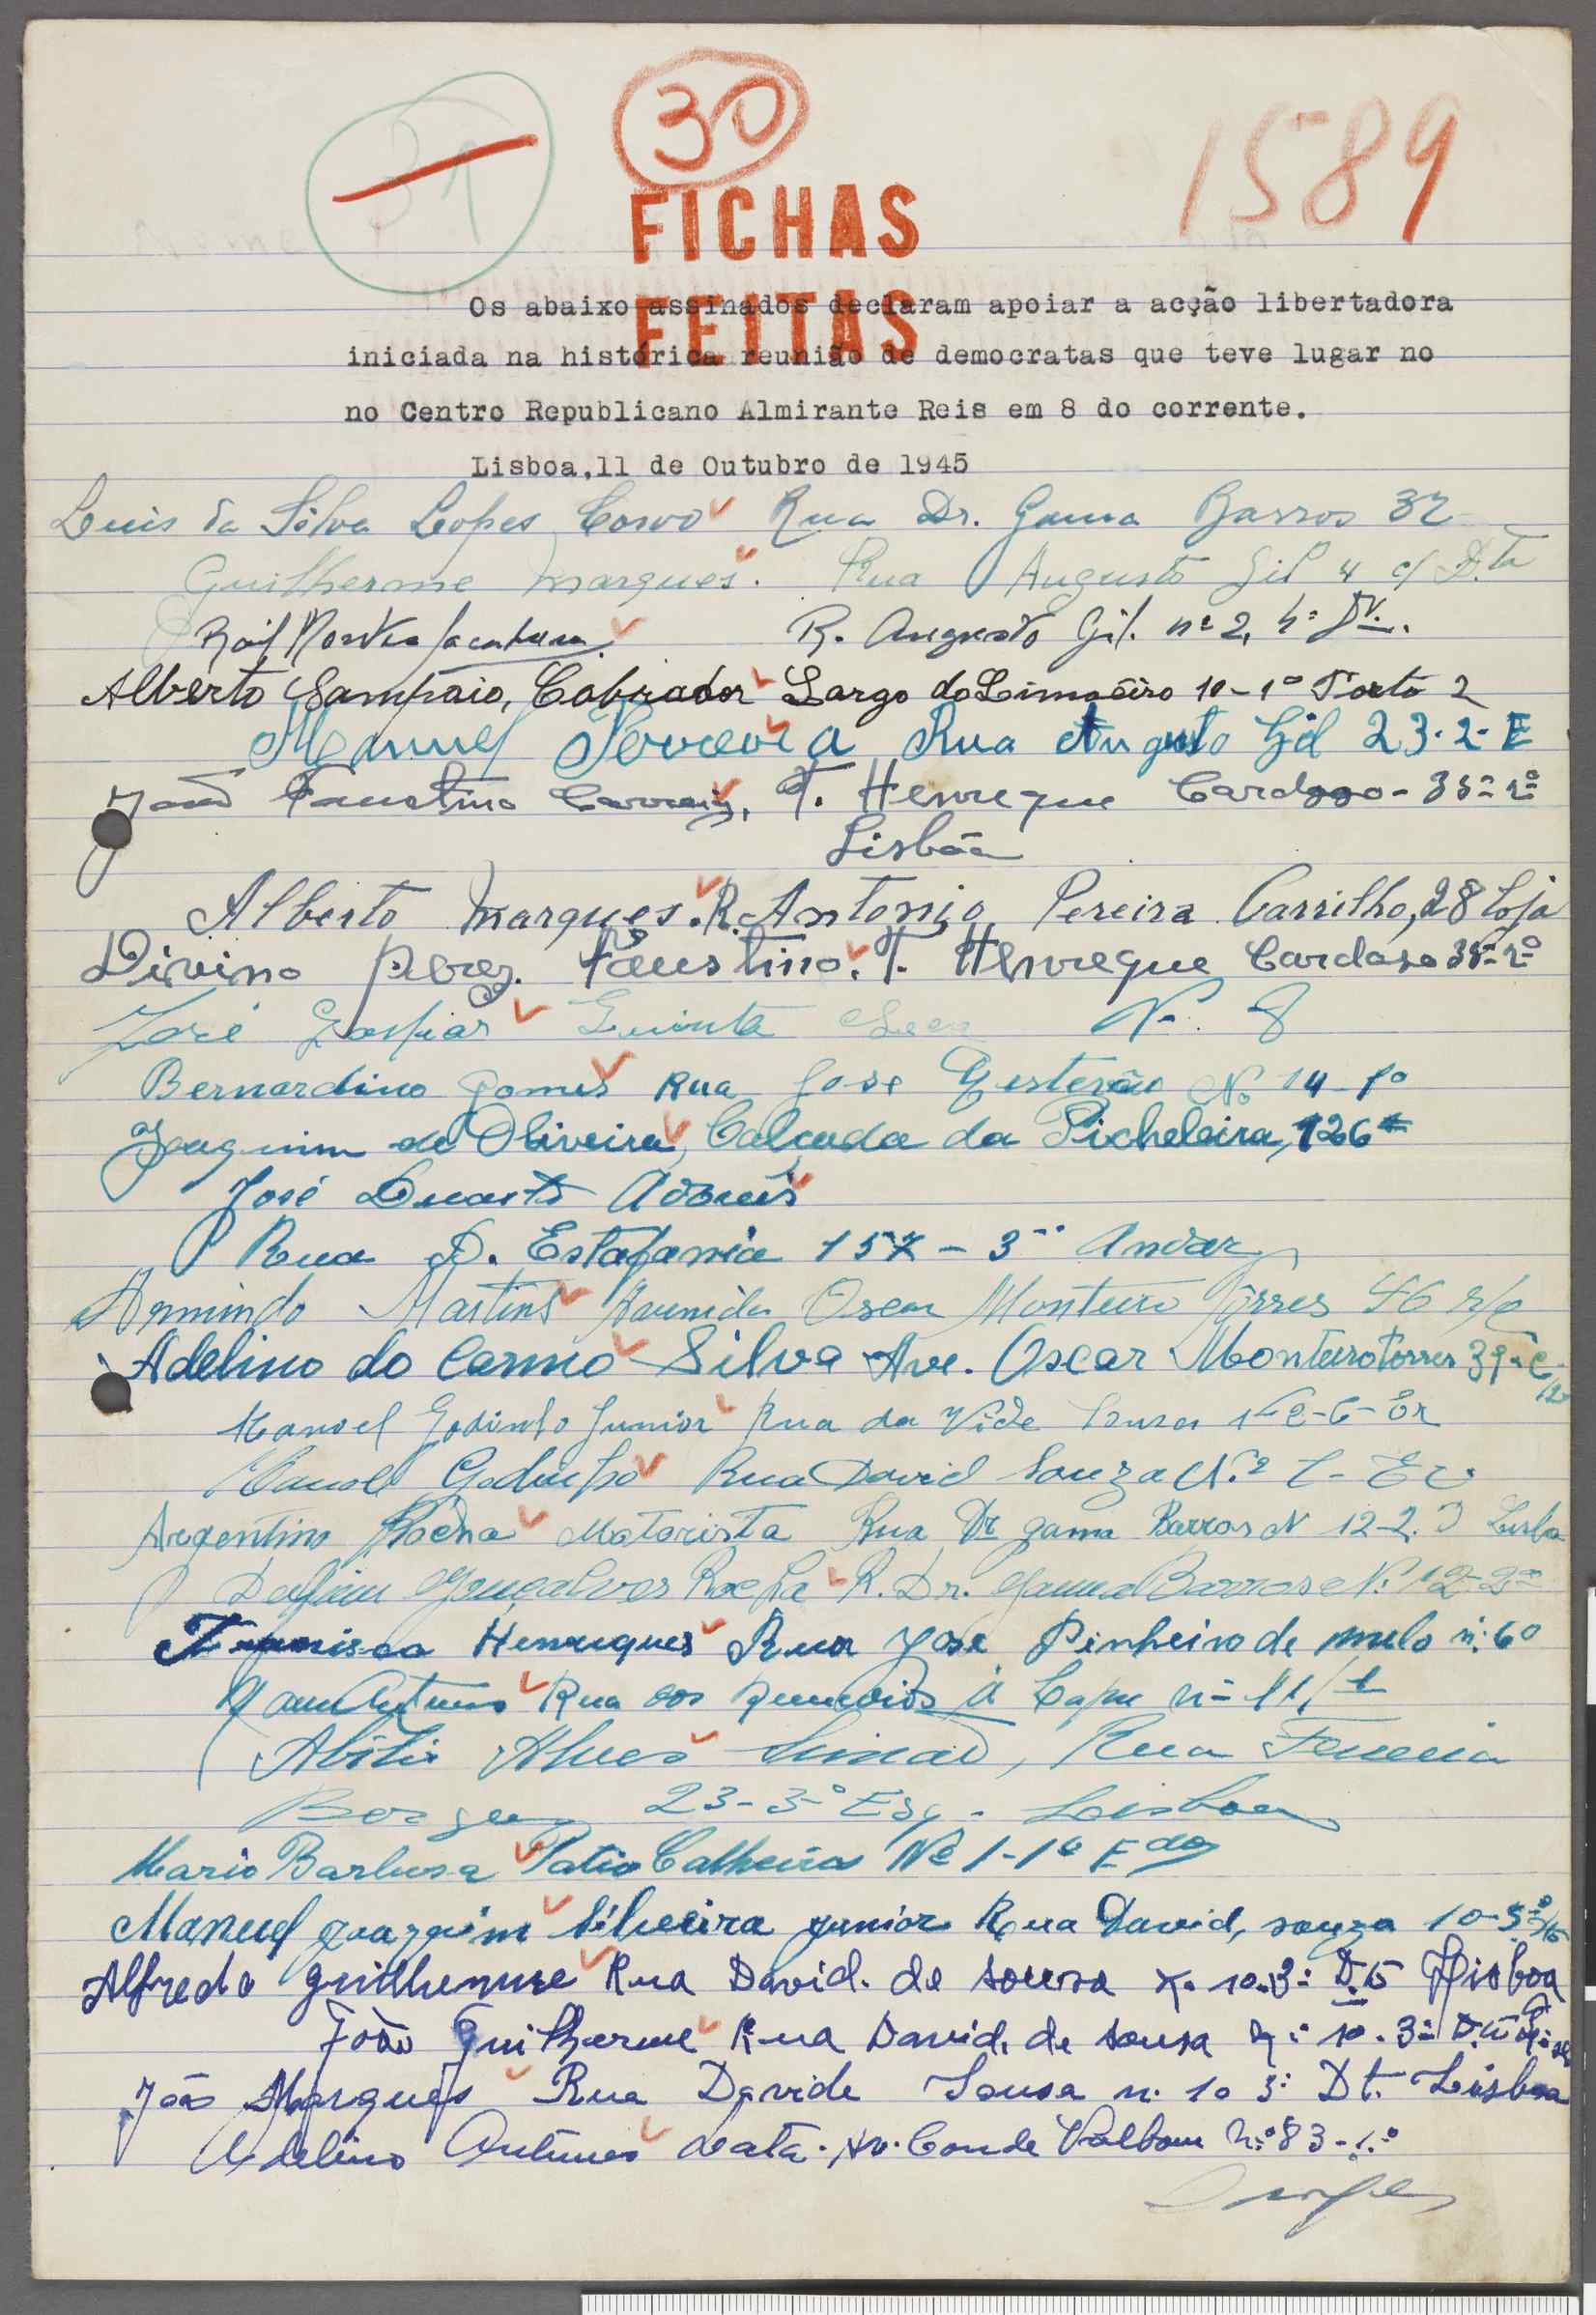 31
30
1589
FICHAS
FEITAS
Os abaixo assinados declaram apoiar a acção libertadora
iniciada na histórica reunião de democratas que teve lugar no
no Centro Republicano Almirante Reis em 8 do corrente.
Lisboa,11 de Outubro de 1945
Luis da Silva Lopes Corvo Rua Dr. Gama Barros 32
Guilherme Marques. Rua Augusto Gil 4 c/ D.ta
R. Augusto Gil. nº 2, 4º Dt.
Alberto Sampaio, Cobrador Largo do Limoeiro 10-1º Porta 2
Manuel Ferreira Rua Augusto Gil 23-2-E
João Faustino Correia, T. Henreque Cardoso-38-2º
Lisbôa
Alberto Marques. R. Antonio Pereira Carrilho, 28 Loja
Divino Perez Faustino. T. Henreque Cardoso 38-2º
José Gaspar Quinta N. 8
Bernardino Gomes Rua Jose N. 14-1º
Joaquim de Oliveira, Calçada da Picheleira, 126
José Duarte
Rua D. Estafania 157-3º Andar
Armindo Martins Avenida Oscar Monteiro Torres 46 r/c
Adelino do Carmo Silva Ave. Oscar Monteiro Torres 39
Manoel Godinho Junior Rua da
Manoel Godinho Rua David Souza N.º
Argentino Rocha Motorista Rua Dr Gama Barros N 12-2. D Lisboa
Delfim Gonçalves Rocha R. Dr. Gama Barros N. 12-2º
Henriques Rua Jose Pinheiro de melo n. 60
Rua dos á Capa nº 11/1
Abilio Alves Simão, Rua Ferreira
Borges 23-3º Esq. Lisboa
Mario Barbosa Patio Calheiros Nº 1-1º
Manuel Joaquim Silveira Junior Rua David, souza 10-3º
Alfredo Guilherme Rua David. de sousa n. 10-3º D.to Lisboa
João Guilherme Rua David. de sousa n. 10. 3º D.to
João Marques Rua Davide Sousa n. 10 3º Dt. Lisboa
Adelino Antunes Lata. Av. Conde Valbom Nº 83-1.º